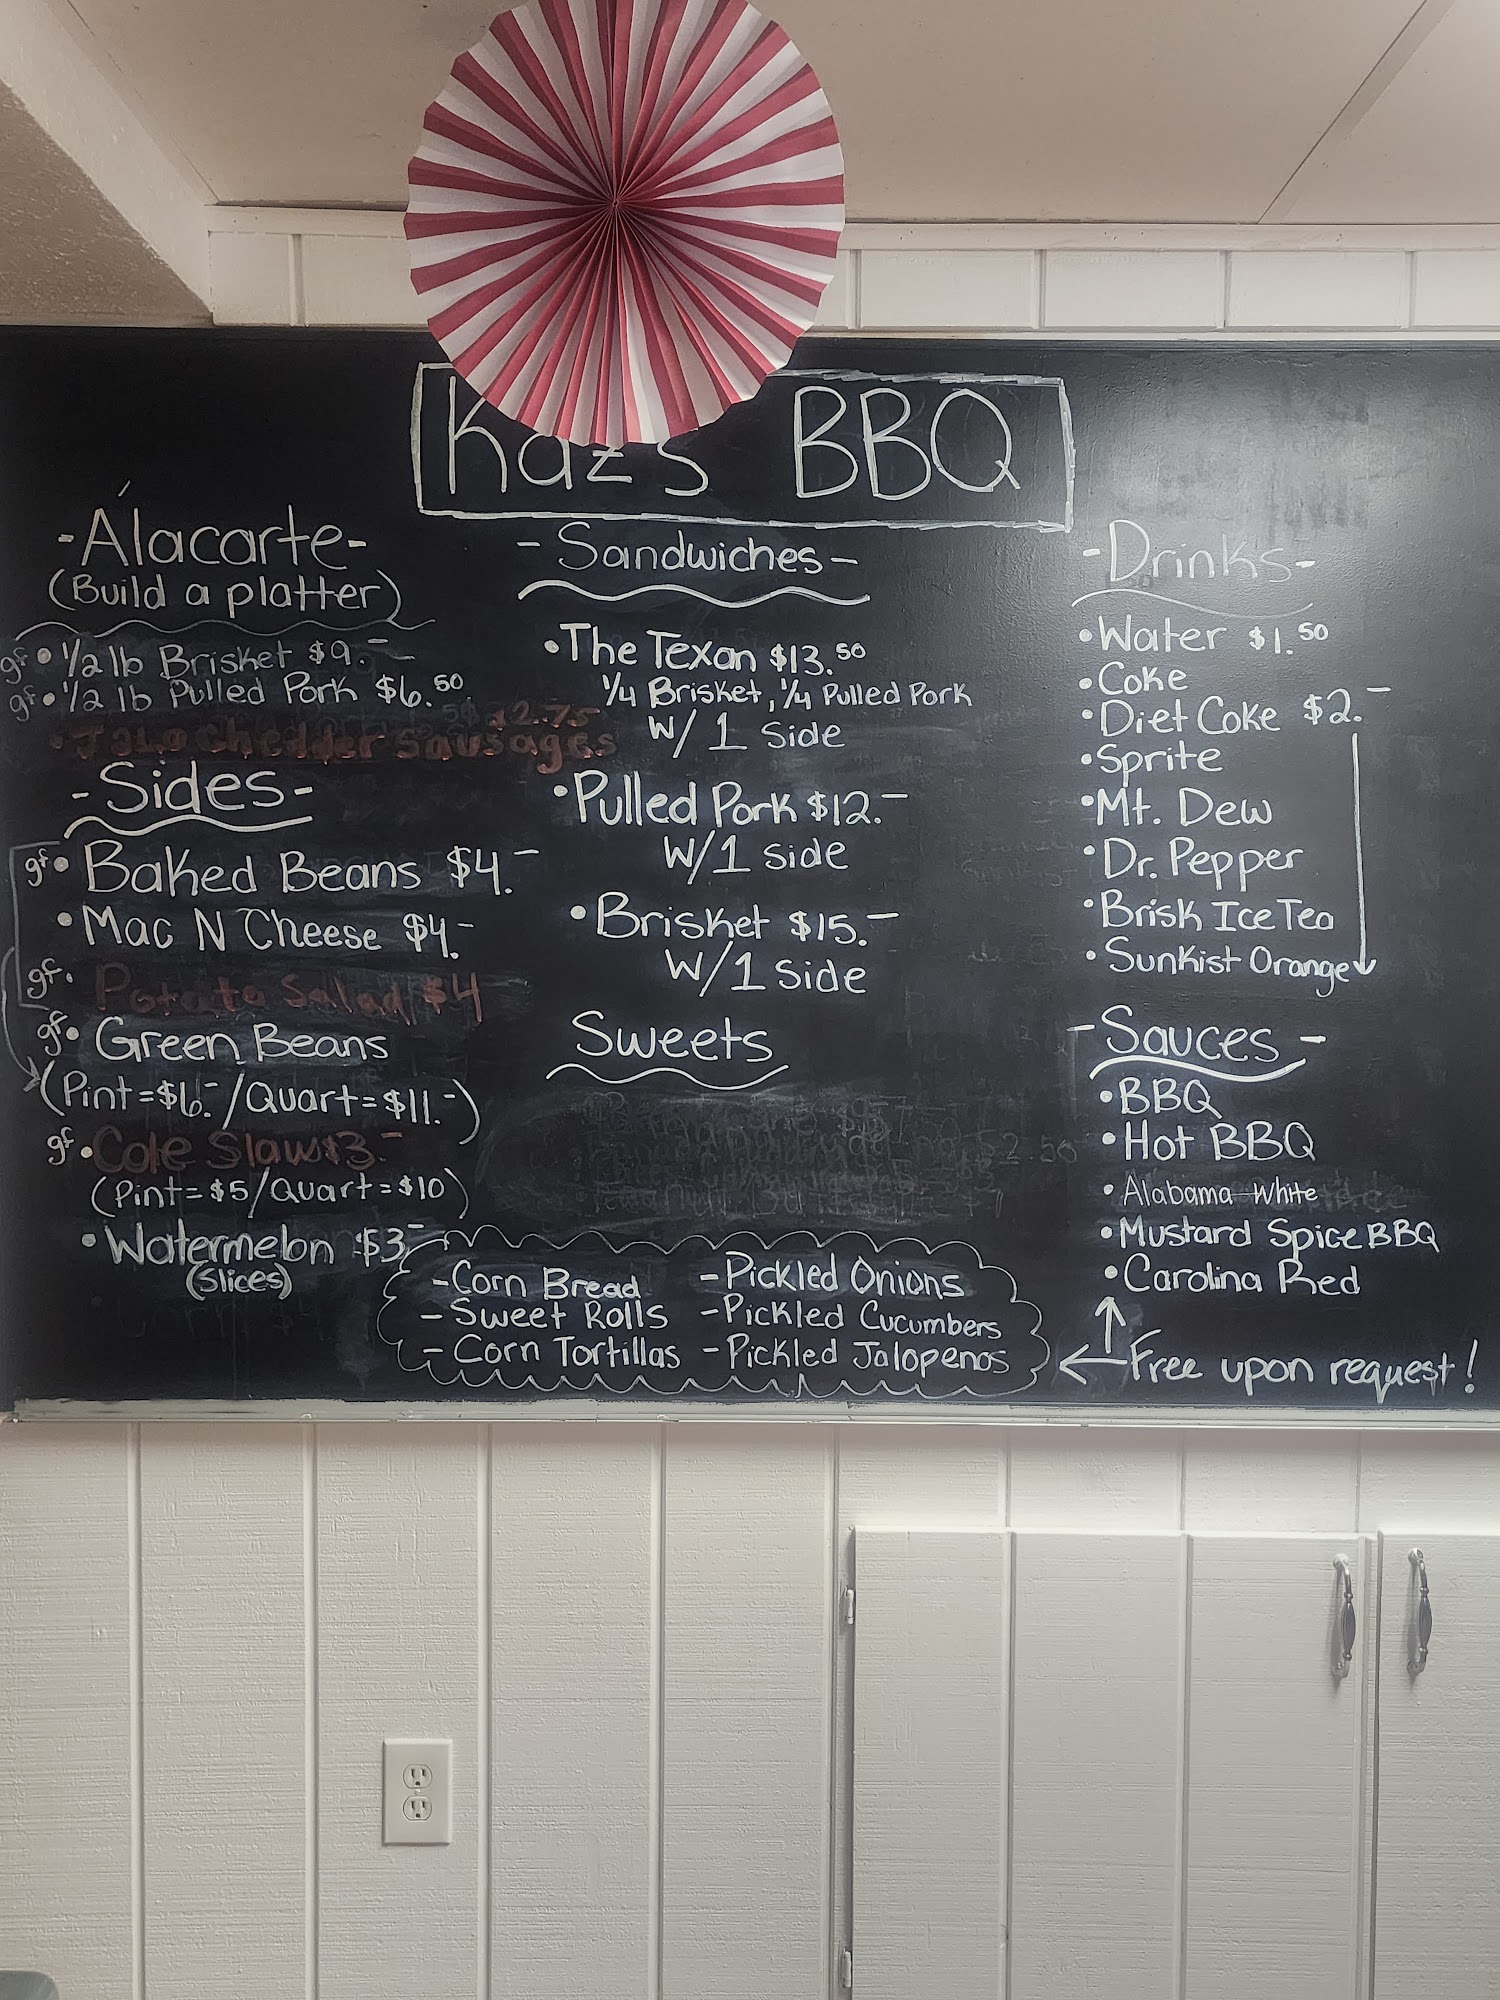 Kaz's BBQ
-Álacarte-
(Build a platter)
gf • 1/2 lb Brisket $9.-
gf • 1/2 lb Pulled Pork $6.50
• Jalo Chedder Sausages
$2.75
-Sides-
gf • Baked Beans $4.-
• Mac N Cheese $4.-
gf • Potato Salad $4
gf • Green Beans
(Pint=$6.-/Quart=$11.-)
gf • Cole Slaw $3.-
(Pint=$5/Quart=$10)
• Watermelon $3.-
(Slices)
-Sandwiches-
• The Texan $13.50
1/4 Brisket, 1/4 Pulled Pork
W/ 1 Side
• Pulled Pork $12.-
W/1 Side
• Brisket $15.-
W/1 Side
Sweets
-Corn Bread
-Sweet Rolls
-Corn Tortillas
-Pickled Onions
-Pickled Cucumbers
-Pickled Jalopenos
-Drinks-
• Water $1.50
• Coke
• Diet Coke $2.-
• Sprite
• Mt. Dew
• Dr. Pepper
• Brisk Ice Tea
• Sunkist Orange
-Sauces-
• BBQ
• Hot BBQ
• Alabama White
• Mustard Spice BBQ
• Carolina Red
Free upon request!